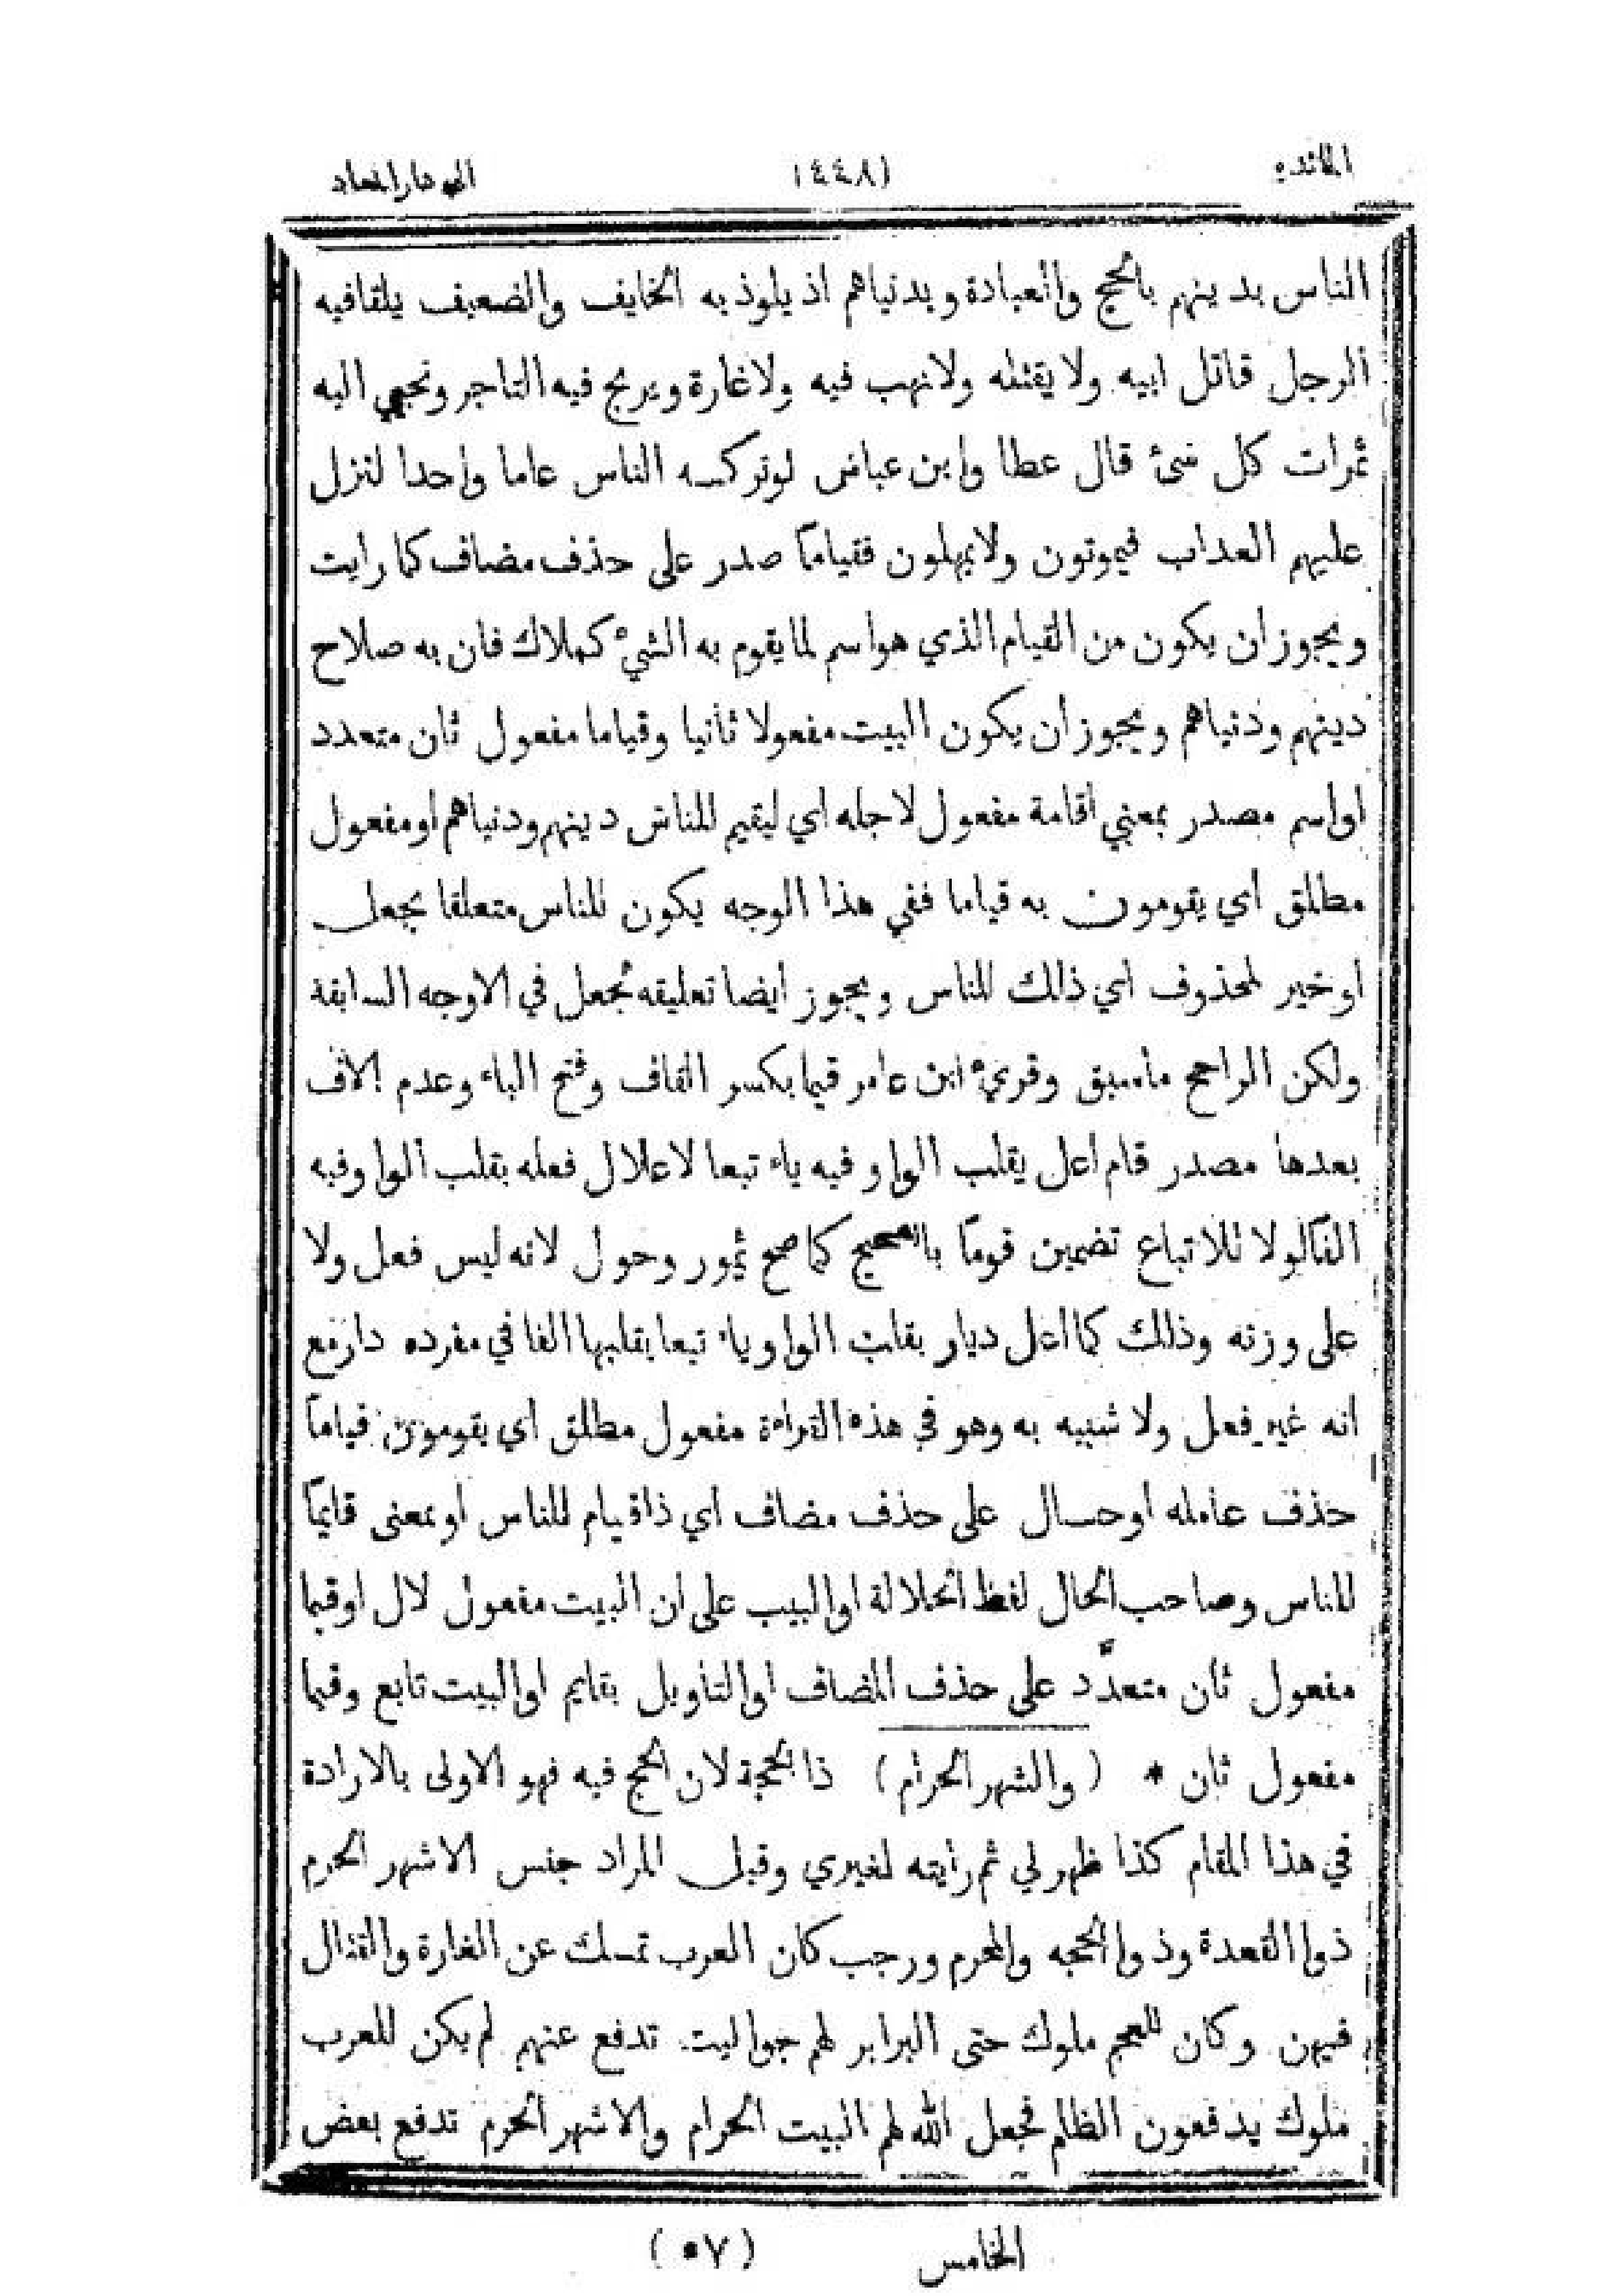 المائده (٤٤٨)
الناس بدينهم بالحج والعبادة وبدنياهم اذ يلوذ به الخايف والضعيف يلقا فيه
الرجل قاتل ابيه ولا يقتله ولا نهب فيه ولا غارة ويربح فيه التاجر وتجبى اليه
ثمرات كل شئ قال عطا وابن عباس لو تركه الناس عاما واحدا لنزل
عليهم العذاب فيموتون ولا يمهلون فقياما صدر على حذف مضاف كما رايت
ويجوز ان يكون من القيام الذي هو اسم لما يقوم به الشيء كملاك فان به صلاح
دينهم ودنياهم ويجوز ان يكون البيت مفعولا ثانيا وقياما مفعول ثان متعدد
او اسم مصدر بمعني اقامة مفعول لاجله اي ليقيم للناس دينهم ودنياهم او مفعول
مطلق اي يقومون به قياما ففي هذا الوجه يكون للناس متعلقا بجعل
او خبر لمحذوف اي ذلك للناس ويجوز ايضا تعليقه بجعل في الاوجه السابقة
ولكن الراجح ما سبق وقريء ابن عامر قيما بكسر القاف وفتح الياء وعدم الالف
بعدها مصدر قام اعل بقلب الواو فيه ياء تبعا لاعلال فعله بقلب الواو فيه
الفا لولا للاتباع تضمين قوما بالصحيح كما صح ثور وحول لانه ليس فعل ولا
على وزنه وذلك كما اعل ديار بقلب الواو ياء تبعا بقلبها الفا في مفرده دار مع
انه غير فعل ولا شبيه به وهو في هذه القراءة مفعول مطلق اي يقومون قياما
حذف عامله او حال على حذف مضاف اي ذا قيام للناس او بمعنى قايما
للناس وصاحب الحال لفظ الجلالة او البيب على ان البيت مفعول لال او قيما
مفعول ثان متعدّد على حذف المضاف او التاويل بقايم او البيت تابع وقيما
مفعول ثان * (والشهر الحرام) ذا الحجة لان الحج فيه فهو الاولى بالارادة
في هذا المقام كذا ظهر لي ثم رايته لغيري وقيل المراد جنس الاشهر الحرم
ذوا القعدة وذوا الحجه والمحرم ورجب كان العرب تمسك عن الغارة والقتال
فيهن وكان للعجم ملوك حتى البرابر لهم جواليت تدفع عنهم لم يكن للعرب
ملوك يدفعون الظلم فجعل الله لهم البيت الحرام والاشهر الحرم تدفع بعض
الخامس (٥٧)